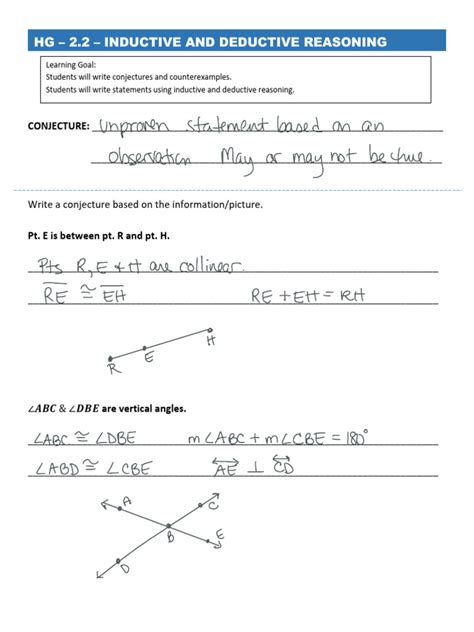 HG – 2.2 – INDUCTIVE AND DEDUCTIVE REASONING
Learning Goal:
Students will write conjectures and counterexamples.
Students will write statements using inductive and deductive reasoning.
CONJECTURE: Unproven statement based on an
observation May or may not be true.
Write a conjecture based on the information/picture.
Pt. E is between pt. R and pt. H.
Pts R, E & H are collinear.
RE ≅ EH RE + EH = RH
R E H
∠ABC & ∠DBE are vertical angles.
∠ABC ≅ ∠DBE m∠ABC + m∠CBE = 180°
∠ABD ≅ ∠CBE AE ⊥ CD
A C
B E
D